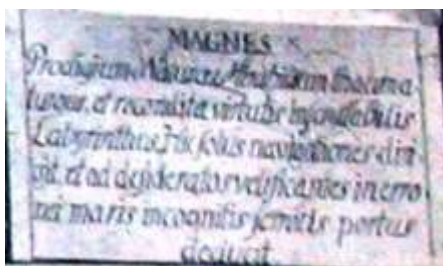 MAGNES
Prodigium Naturae
et recondita virtutis
Labyrinthus. Hic solus navigationes diri
git, et ad desideratos velificantes in erro
nei maris incognitis semitis portus
deducit.